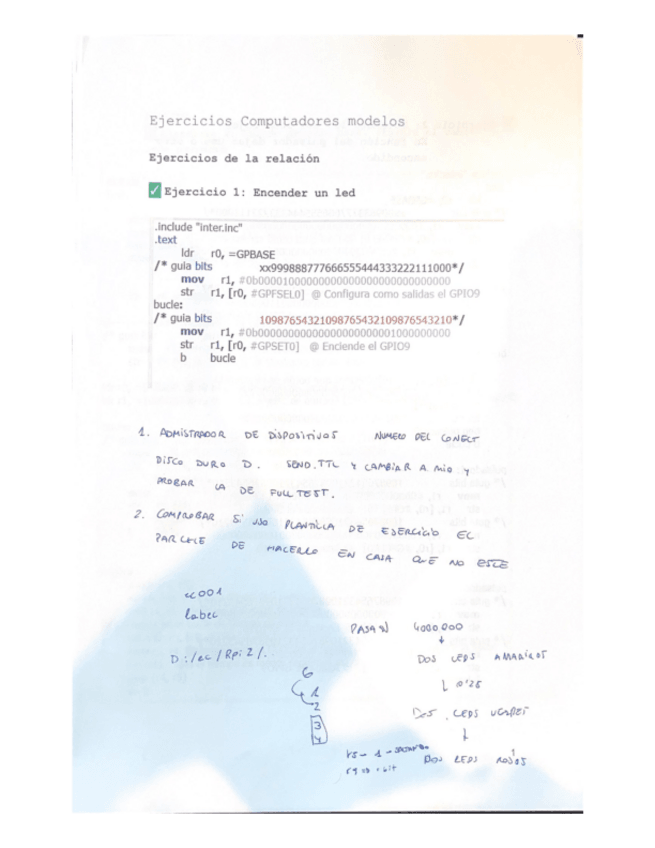 Ejercicios Computadores modelos
Ejercicios de la relación
Ejercicio 1: Encender un led
.include "inter.inc"
.text
ldr r0, =GPBASE
/* guia bits xx999888777666555444333222111000*/
mov r1, #0b00001000000000000000000000000000
str r1, [r0, #GPFSEL0] @ Configura como salidas el GPIO9
bucle:
/* guia bits 10987654321098765432109876543210*/
mov r1, #0b00000000000000000000001000000000
str r1, [r0, #GPSET0] @ Enciende el GPIO9
b bucle
1. ADMISTRADOR DE DISPOSITIVOS NUMERO DEL
DISCO DURO D. SEND.TTL Y CAMBIAR A MIO Y
PROBAR LA DE FULL TEST.
2. COMPROBAR SI USO PLANTILLA DE EJERCICIO EL
DE HACERLO EN CASA QUE NO ESTE
cc001
labec
PASAN 4000000
D:/ec/Rpi2/.
DOS LEDS AMARILLOS
0'25
6
1
2
3
4
DOS LEDS VERDES
DOS LEDS ROJOS